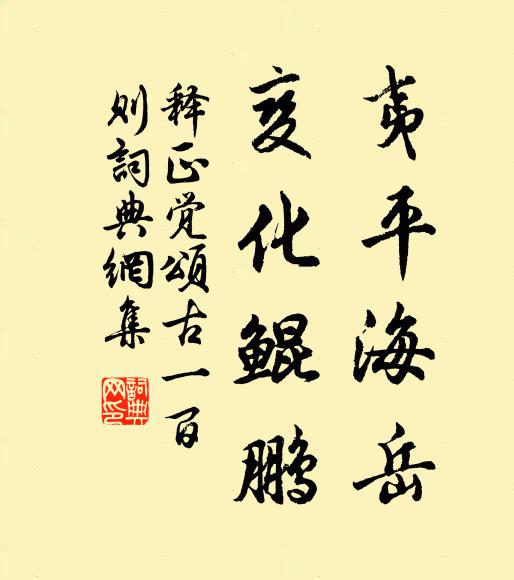 夷平海岳
变化鲲鹏
释正觉颂古一百
则词典網集
詞典网印